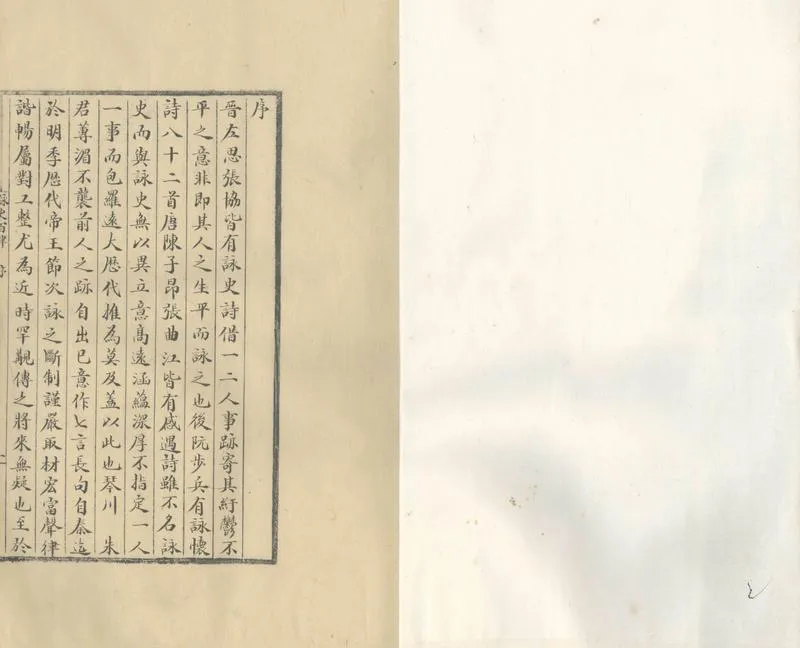 序
晉左思張協皆有詠史詩借一二人事跡寄其紆鬱不
平之意非即其人之生平而詠之也後阮步兵有詠懷
詩八十二首唐陳子昂張曲江皆有感遇詩雖不名詠
史而與詠史無以異立意高遠涵蘊深厚不指定一人
一事而包羅遠大歷代推為莫及蓋以此也琴川 朱
君尊湄不襲前人之跡自出己意作七言長句自秦迄
於明季歷代帝王節次詠之斷制謹嚴取材宏富聲律
諧暢屬對工整尤為近時罕覯傳之將來無疑也至於
詠史百律 序